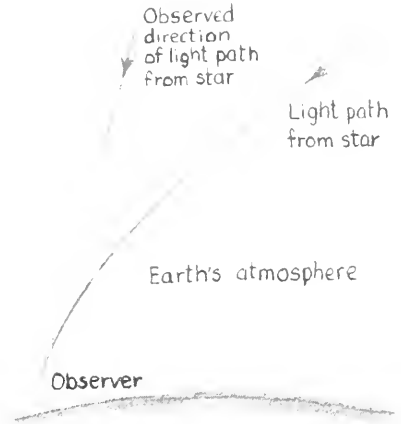 Observed
direction
of light path
from star
Light path
from star
Earth's atmosphere
Observer